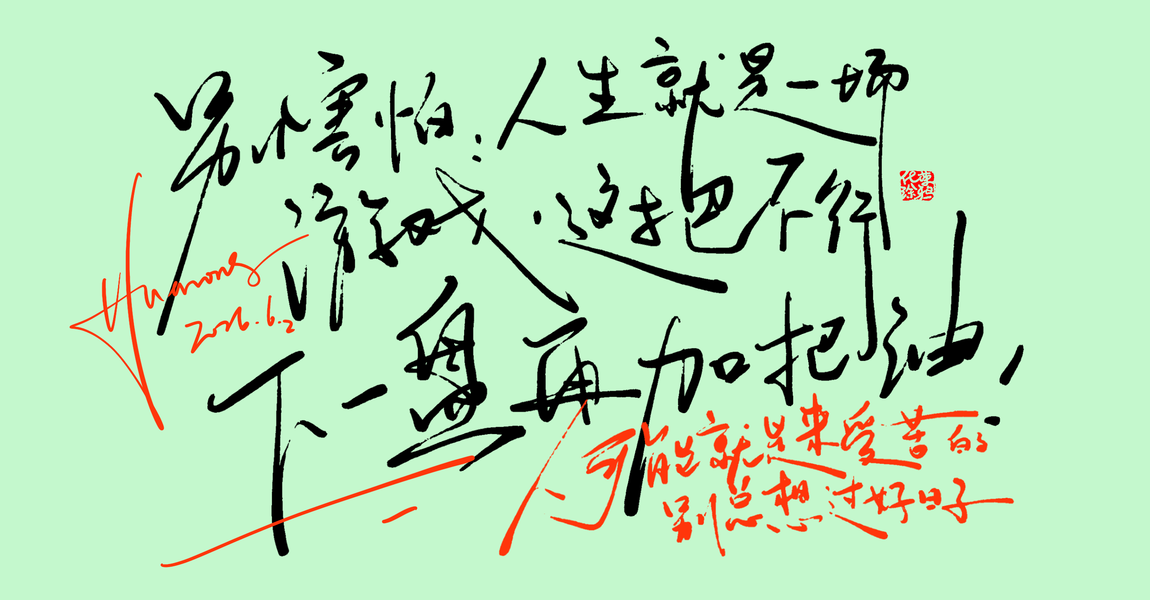 别害怕:人生就是一场
游戏,这把不行
下一盘再加把油!
Huarong
2026.6.2
可能就是来受苦的
别总想过好日子